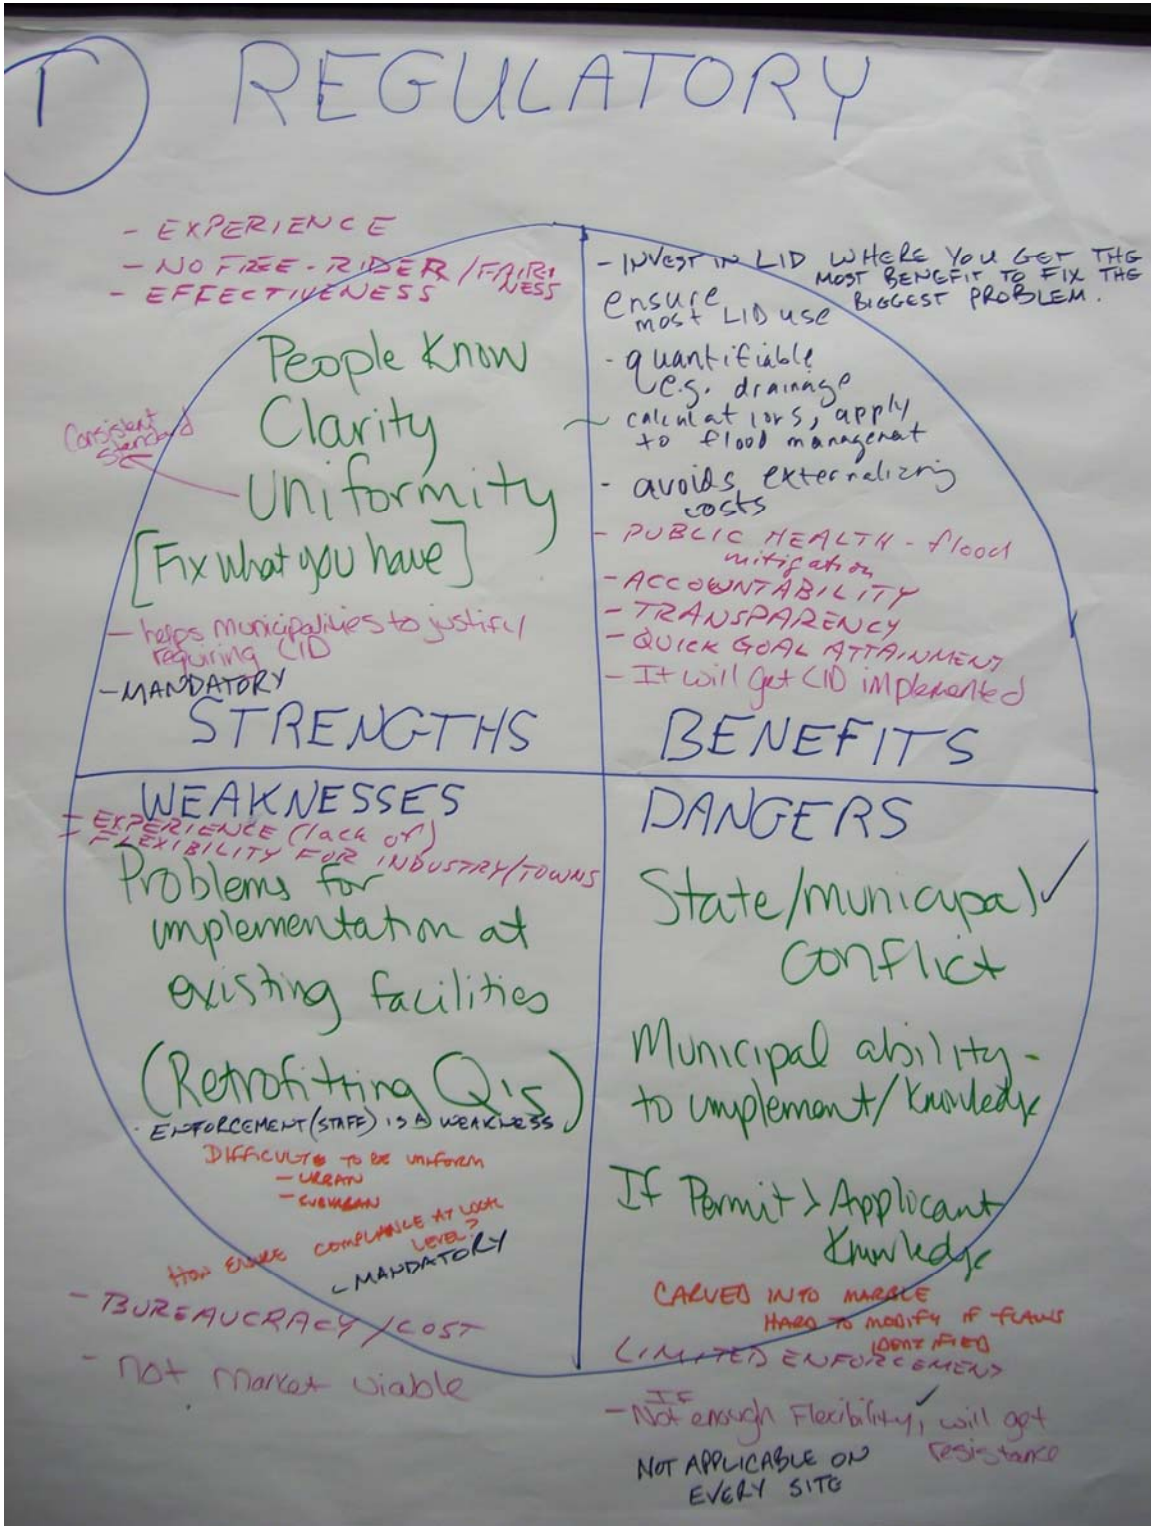 1
REGULATORY
- EXPERIENCE
- NO FREE-RIDER/FAIRNESS
- EFFECTIVENESS
People Know
Clarity
Consistent
standard
Uniformity
[Fix what you have]
- helps municipalities to justify
requiring LID
- MANDATORY
STRENGTHS
- INVEST IN LID WHERE YOU GET THE
MOST BENEFIT TO FIX THE
BIGGEST PROBLEM.
ensure
most LID use
- quantifiable
e.g. drainage
calculations, apply
to flood management
- avoids externalizing
costs
- PUBLIC HEALTH - flood
mitigation
- ACCOUNTABILITY
- TRANSPARENCY
- QUICK GOAL ATTAINMENT
- It will get LID implemented
BENEFITS
WEAKNESSES
- EXPERIENCE (lack of)
- FLEXIBILITY FOR INDUSTRY/TOWNS
Problems for
implementation at
existing facilities
(Retrofitting Q's)
- ENFORCEMENT (STAFF) IS A WEAKNESS
DIFFICULT TO BE UNIFORM
- URBAN
- SUBURBAN
HOW ENSURE COMPLIANCE AT LOCAL
LEVEL?
- MANDATORY
- BUREAUCRACY/COST
- not market viable
DANGERS
State/municipal ✓
conflict
Municipal ability -
to implement/knowledge
If Permit > Applicant
Knowledge
CARVED INTO MARBLE
HARD TO MODIFY IF FLAWS
IDENTIFIED
LIMITED ENFORCEMENT
- If Not enough Flexibility, ✓ will get
resistance
NOT APPLICABLE ON
EVERY SITE